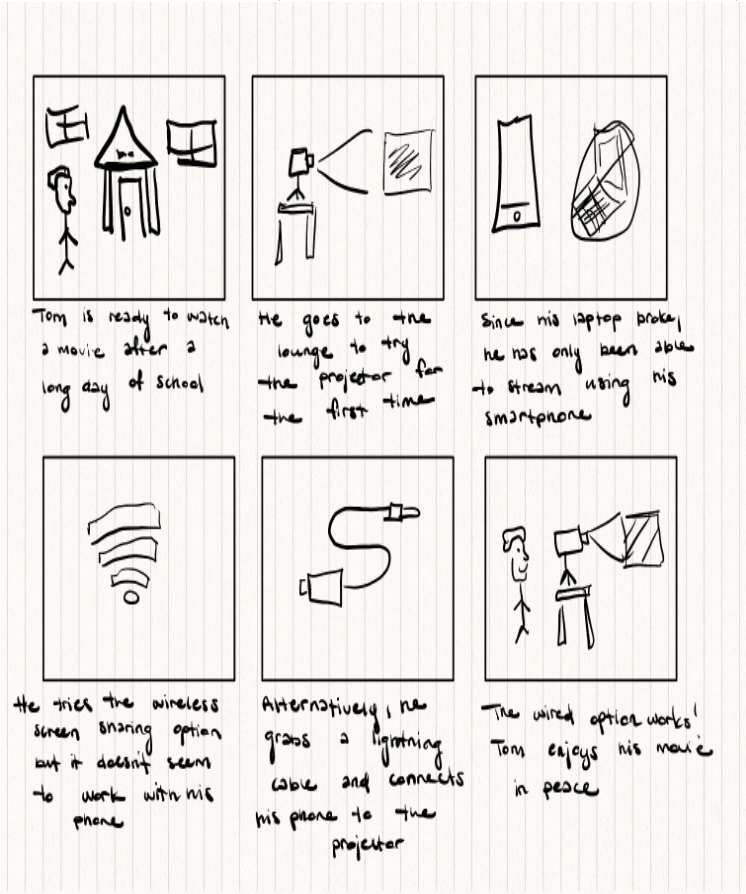 Tom is ready to watch
a movie after a
long day of school
He goes to the
lounge to try
the projector for
the first time
Since his laptop broke,
he has only been able
to stream using his
smartphone
He tries the wireless
screen sharing option
but it doesn't seem
to work with his
phone
Alternatively, he
grabs a lightning
cable and connects
his phone to the
projector
The wired option works!
Tom enjoys his movie
in peace